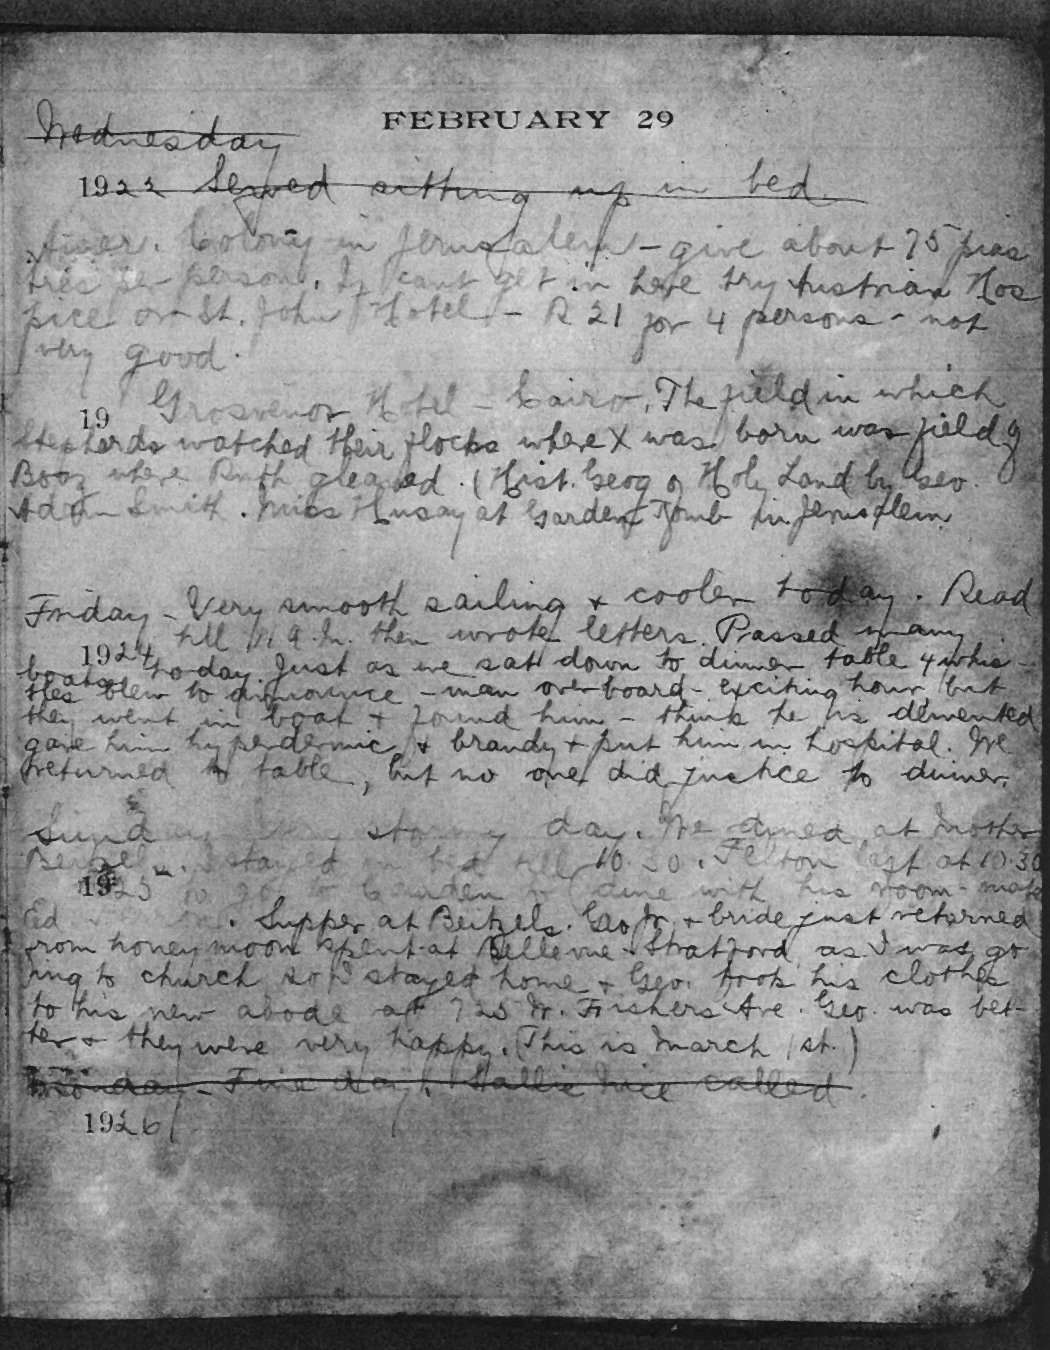 FEBRUARY 29
Wednesday
1922 Sewed sitting up in bed
Amer. Colony in Jerusalem - give about 75 pias
tres per person. If cant get in here try Austrian Hos
pice or St. John Hotel - R 21 for 4 persons - not
very good.
19 Grosvenor Hotel - Cairo. The field in which
Shepherds watched their flocks where X was born was field of
Booz where Ruth gleaned. (Hist. Geog of Holy Land by Geo.
Adam Smith. Miss Husay at Garden Tomb in Jerusalem
Friday - Very smooth sailing & cooler today. Read
1924 till 11 A.M. then wrote letters. Passed many
boats today. Just as we sat down to dinner table 4 whis-
tles blew to announce - man overboard - exciting hour but
they went in boat & found him - think he is demented
gave him hyperdermic & brandy & put him in hospital. We
returned to table, but no one did justice to dinner.
Sunday Very stormy day. We dined at Mother
Beitzel. I stayed in bed till 10.30. Felton left at 10.30
1925 to go to Camden to dine with his room-mate
Ed . Supper at Beitzels. Geo Jr. & bride just returned
from honeymoon spent at Bellevue-Stratford as I was go
ing to church so I stayed home & Geo. took his clothes
to his new abode at 725 W. Fishers Ave. Geo. was bet-
ter & they were very happy. (This is March 1st.)
Monday - Fine day. Hallie called
1926